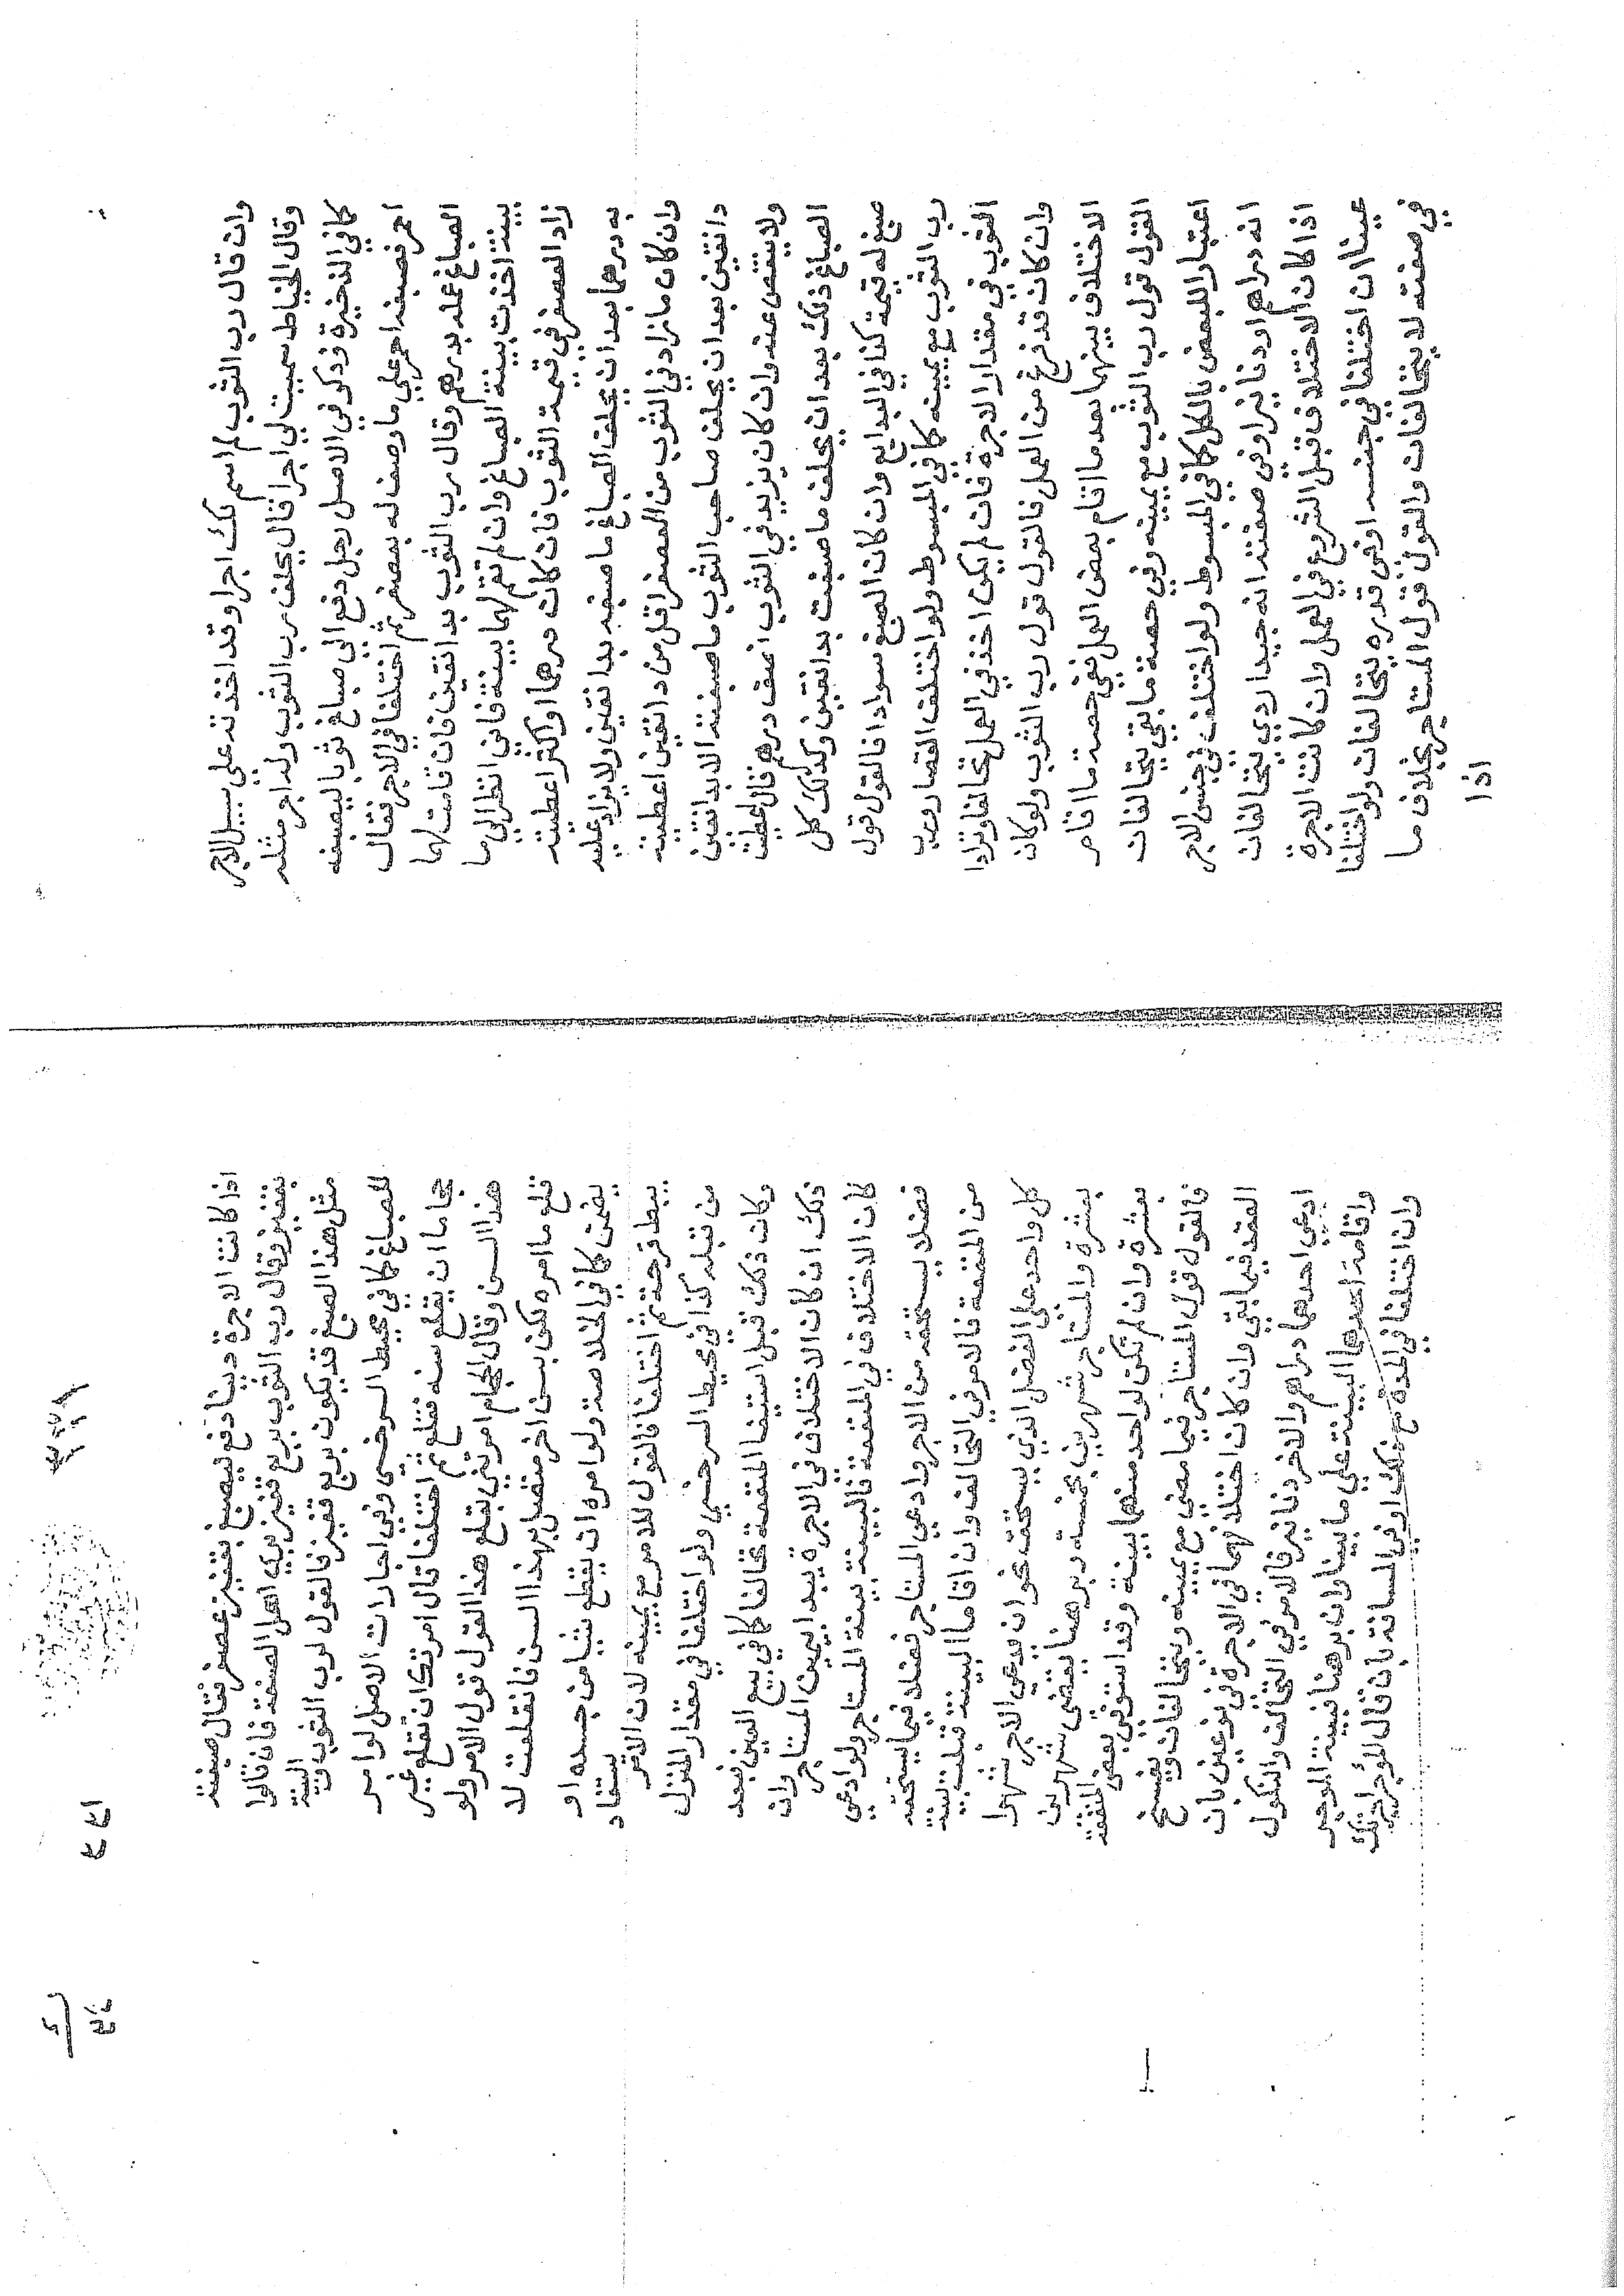 وان قال رب الثوب لم اسم لك اجرا وقد اخذته علي سبيل الاجر
وقال الخياط سميت لي اجرا قال يحلف رب الثوب وله اجر مثله
كما في الذخيرة وذكر في الاصل رجل دفع الي صباغ ثوبا ليصبغه
احمر فصبغه احمر علي ما وصف له بعصفر ثم اختلفا في الاجر فقال
الصباغ عملته بدرهم وقال رب الثوب بدانقين فان قامت لهما
بينة اخذت بينة الصباغ وان لم تقم لهما بينة فاني انظر الي ما
زاد العصفر في قيمة الثوب فان كان درهما او اكثر اعطيته
به درهما بعد ان يحلف الصباغ ما صبغه بدانقين ولا يزاد عليه
وان كان ما زاد في الثوب من العصفر اقل من دانقين اعطيته
دانقين بعد ان يحلف صاحب الثوب ما صبغته الا بدانقين
ولا ينتقص عنه وان كان يزيد في الثوب نصف درهم قال اعطيت
الصباغ ذلك بعد ان يحلف ما صبغت بدانقين وكذلك كل
صبغ له قيمة كذا في البدايع وان كان الصبغ سوادا فالقول قول
رب الثوب مع يمينه كما في المبسوط ولو اختلف القصار ورب
الثوب في مقدار الاجرة فان لم يكن اخذ في العمل تحالفا وترادا
وان كان قد فرغ من العمل فالقول قول رب الثوب ولو كان
الاختلاف بينهما بعد ما اقام بعض العمل ففي حصة ما اقام
القول قول رب الثوب مع يمينه وفي حصة ما بقي يتحالفان
اعتبارا للبعض بالكل كما في المبسوط ولو اختلف في جنس الاجر
انه دراهم او دنانير او في صفته انه جيد او ردي يتحالفان
اذا كان الاختلاف قبل الشروع في العمل وان كانت الاجرة
عينا ان اختلفا في جنسه او في قدره يتحالفان ولو اختلفا
في صفته لا يتحالفان والقول قول المستاجر بخلاف ما
اذا
اذا كانت الاجرة دينا دفع ليصبغ بقفيز عصفر فقال صبغته
بقفيز وقال رب الثوب بربع قفيز يري اهل الصنعة فان قالوا
مثل هذا الصبغ قد يكون بربع قفيز فالقول لرب الثوب والبينة
للصباغ كما في محيط السرخسي وفي اجارات الاصل لو امر
حجاما ان يقلع سنه فقلع ثم اختلفا قال امرتك ان تقلع غير
هذا السن وقال الحجام امرتني بقلع هذا القول قول الامر ولو
قلع ما امره لكن بسن اخر متصل بهذا السن فانقلعت لا
يضمن كما في الخلاصة ولو امره ان يقطع شيا من جسده او
يبط قرحة ثم اختلفا فالقول للامر مع يمينه لان الامر يستفاد
من قبله كذا في محيط السرخسي ولو اختلفا في مقدار المنزل
وكان ذلك قبل استيفا المنفعة تحالفا كما في بيع العين فبعد
ذلك ان كان الاختلاف في الاجرة يبدا بيمين المستاجر وان
كان الاختلاف في المنفعة فالبينة بينة المستاجر ولو ادعي
فضلا يستحقه من الاجر وادعي المستاجر فضلا فيما يستحقه
من المنفعة فالامر في التحالف وان اقاما البينة قبلت بينة
كل واحد علي الفضل الذي يستحقه نحو ان يدعي الاجر شهرا
بعشرة والمستاجر شهرين بخمسة وبرهنا يقضي بشهرين
بعشرة وان لم تكن لواحد منهما بينة وقد استوفي بعض المنفعة
فالقول قول المستاجر فيما مضي مع يمينه ويتحالفان ويفسخ
العقد فيما بقي وان كان اختلافهما في الاجرة في نوعين بان
ادعي احدهما دراهم والاخر دنانير فالامر في التحالف والنكول
واقامة احدهما البينة علي ما بينا وان برهنا فبينة الموجر
وان اختلفا في المدة مع ذلك او في المسافة بان قال الموجر اجرتك